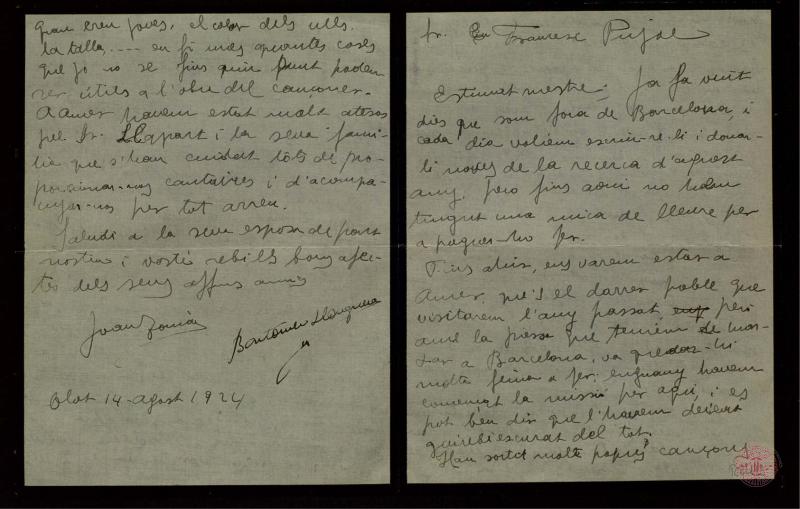 Sr. En Francesc Pujol
Estimat mestre: Ja fa vint
dies que som fora de Barcelona, i
cada dia volíem escriure-li i donar-
li noves de la recerca d'aquest
any, pero fins aqui no hem
tingut una mica de lleure per
a poguer-ho fer.
Fins ahir, ens varem estar a
Amer, que's el darrer poble que
visitarem l'any passat, però
amb la pressa que teniem de tor-
nar a Barcelona, va quedar-hi
molta feina a fer; enguany havem
començat la missió per aqui, i es
pot ben dir que l'havem deixat
escurat del tot.
Han sortit molte cançons
quan eren joves, el color dels ulls,
la talla.... en fi mes quantes coses
que jo no se fins quin punt poden
ser útils a l'obra del cançoner.
A Amer havem estat molt atesos
pel Sr. Llapart i la seva fami-
lia que s'han cuidat tots de pro-
porcionar-nos cantaires i d'acompa-
nyar-nos per tot arreu.
Saludi a la seva esposa de part
nostra i vostè rebi els bons afec-
tes dels seus affms amics
Joan Tomàs
Bartomeu Llongueras
Olot 14-agost 1924